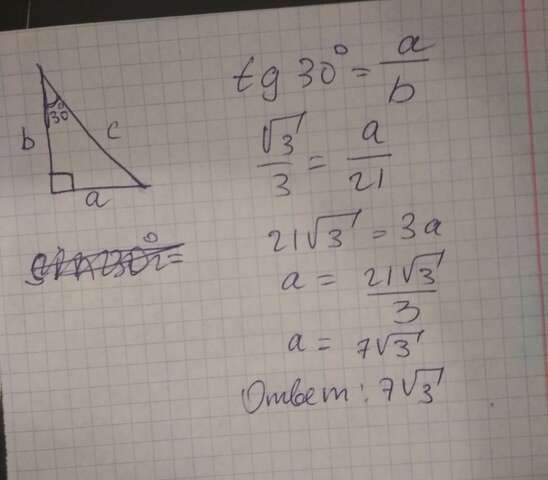 30°
b
c
a
tg 30° = a/b
√3/3 = a/21
21√3 = 3a
a = 21√3/3
a = 7√3
Ответ: 7√3